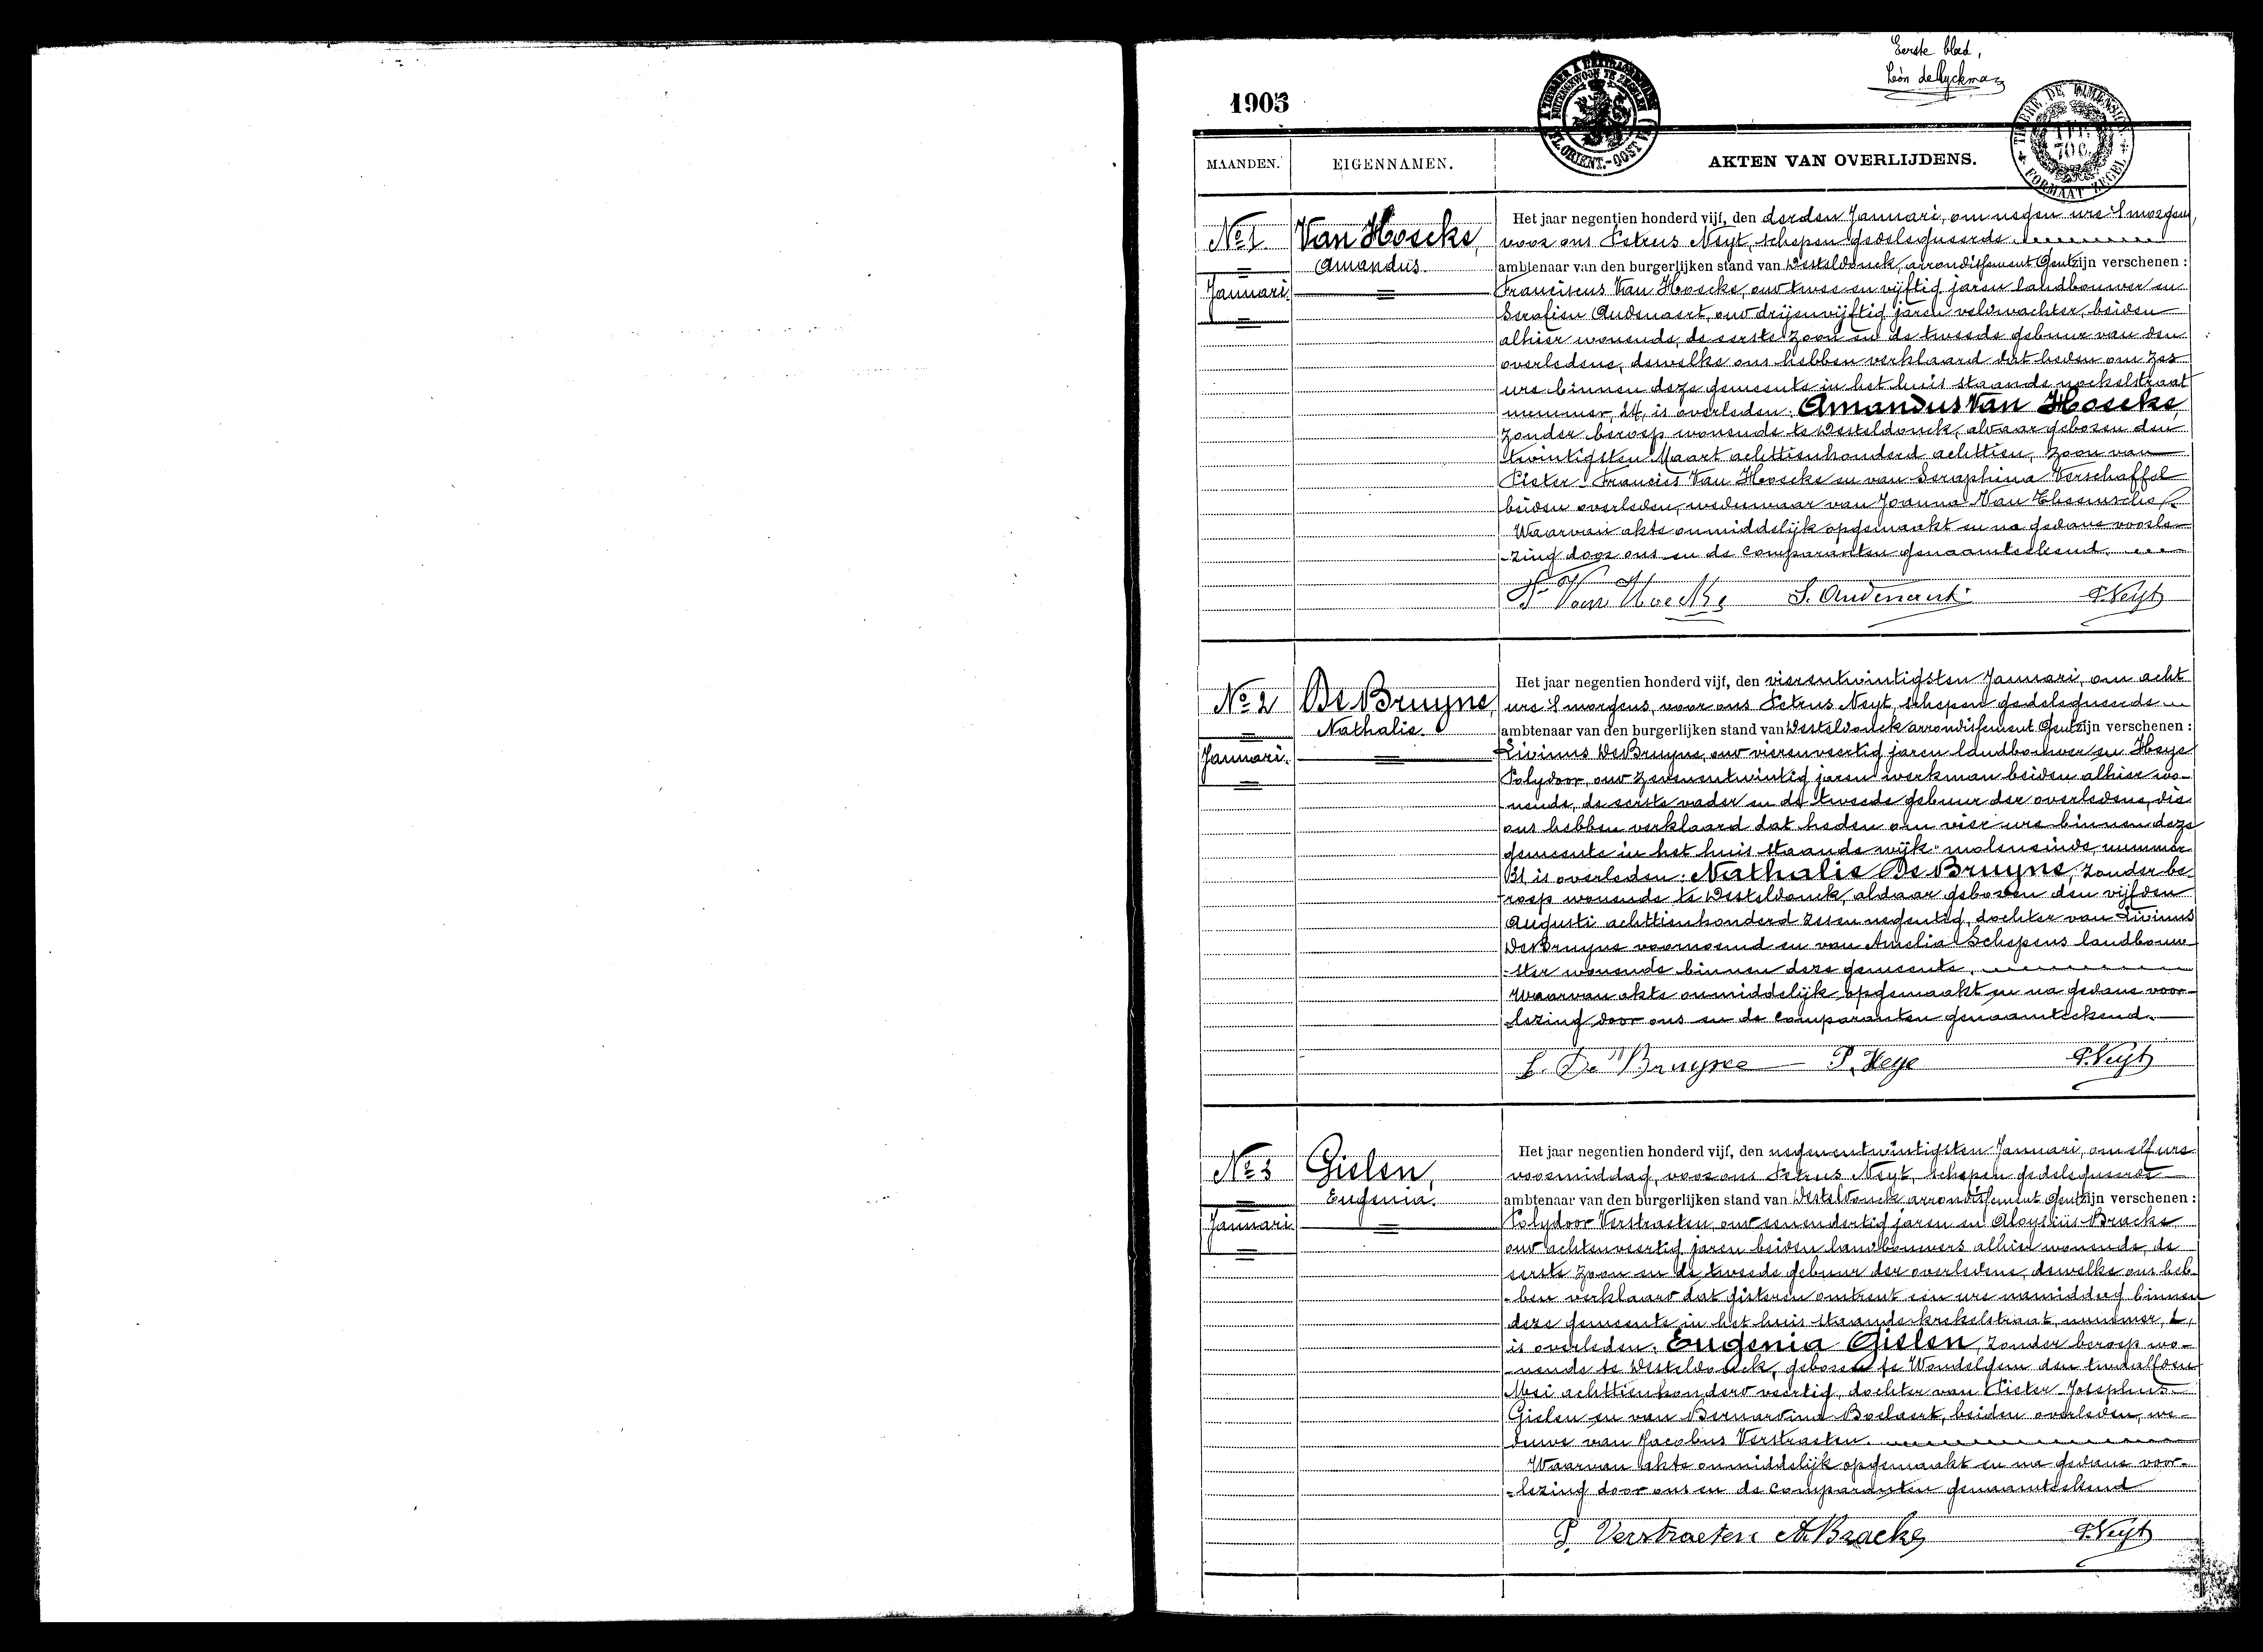 Eerste blad,
Léon deRyckman
1905
MAANDEN.
EIGENNAMEN.
AKTEN VAN OVERLIJDENS.
TIMBRE DE DIMENSION
70 C.
FORMAAT ZEGEL
FL. ORIENT.-OOST VL.
No 1
Januari.
Van Hoecke,
Amandus.
Het jaar negentien honderd vijf, den derden Januari, om negen ure 's morgens,
voor ons Petrus Neyt, schepen gedelegueerde
ambtenaar van den burgerlijken stand van Desteldonck, arrondissement Gent zijn verschenen :
Franciscus Van Hoecke, oud twee en vijftig jaren landbouwer en
Serafien Audenaert, oud drijenvijftig jaren veldwachter, beiden
alhier wonende, de eerste zoon en de tweede gebuur van den
overledene, dewelke ons hebben verklaard dat heden om zes
ure binnen deze gemeente in het huis staande
nummer, 14, is overleden: Amandus Van Hoecke,
zonder beroep wonende te Desteldonck, aldaar geboren den
twintigsten Maart achttienhonderd achttien, zoon van
Pieter-Francies Van Hoecke en van Seraphina Verschaffel
beiden overleden, weduwaar van Joanna Van
Waarvan akte onmiddelijk opgemaakt en na gedane voorle-
-zing door ons en de comparanten genaamteekend.
F. Van Hoecke S. Audenaert P. Neyt
No 2
Januari.
De Bruyne,
Nathalie.
Het jaar negentien honderd vijf, den vierentwintigsten Januari, om acht
ure 's morgens, voor ons Petrus Neyt, schepen gedelegueerde
ambtenaar van den burgerlijken stand van Desteldonck arrondissement Gent zijn verschenen :
Livinus De Bruyne, oud vierenveertig jaren landbouwer en Heye
Polydoor, oud zevenentwintig jaren werkman beiden alhier wo-
-nende, de eerste vader en de tweede gebuur der overledene, die
ons hebben verklaard dat heden om vier ure binnen deze
gemeente in het huis staande wijk-moleneinde, nummer
31 is overleden: Nathalie De Bruyne, zonder be-
-roep wonende te Desteldonck, aldaar geboren den vijfden
Augusti achttienhonderd zesennegentig, dochter van Livinus
De Bruyne voornoemd en van Amelia Schepens landbouw-
-ster wonende binnen deze gemeente.
Waarvan akte onmiddelijk opgemaakt en na gedane voor-
-lezing door ons en de comparanten genaamteekend.
L. De Bruyne P. Heye P. Neyt
No 3
Januari
Gielen,
Eugenia.
Het jaar negentien honderd vijf, den negenentwintigsten Januari, om elf ure
voormiddag, voor ons Petrus Neyt, schepen gedelegueerde
ambtenaar van den burgerlijken stand van Desteldonck arrondissement Gent zijn verschenen :
Polydoor Verstraeten, oud eenendertig jaren en Aloysius Bracke
oud achtenveertig jaren beiden landbouwers alhier wonende, de
eerste zoon en de tweede gebuur der overledene, dewelke ons heb-
-ben verklaard dat gisteren omtrent een ure namiddag binnen
deze gemeente in het huis staande krekelstraat, nummer, 1,
is overleden: Eugenia Gielen, zonder beroep wo-
-nende te Desteldonck, geboren te Wondelgem den twaalfden
Mei achttienhonderd veertig, dochter van Pieter-Josephus
Gielen en van Bernardina Boelaert, beiden overleden, we-
duwe van Jacobus Verstraeten.
Waarvan akte onmiddelijk opgemaakt en na gedane voor-
-lezing door ons en de comparanten genaamteekend
P. Verstraeten A. Bracke P. Neyt